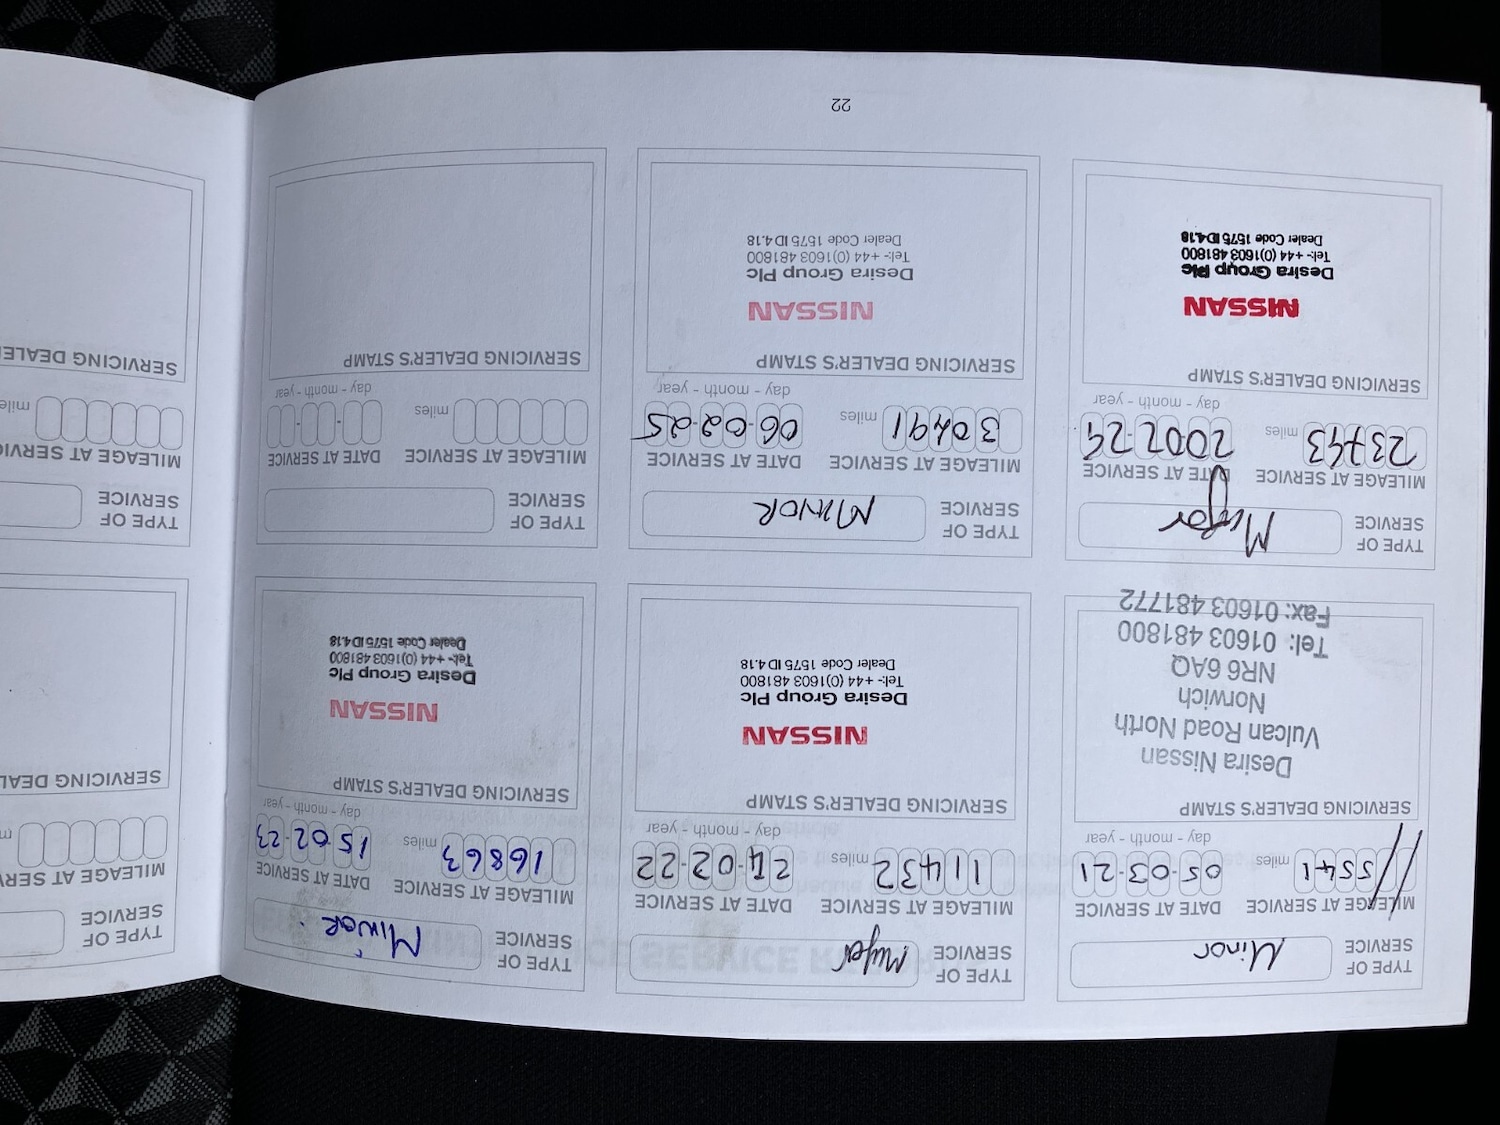 TYPE OF
SERVICE
Minor
MILEAGE AT SERVICE
DATE AT SERVICE
//5541 miles
05-03-21
day - month - year
SERVICING DEALER'S STAMP
Desira Nissan
Vulcan Road North
Norwich
NR6 6AQ
Tel: 01603 481800
Fax: 01603 481772
TYPE OF
SERVICE
Major
MILEAGE AT SERVICE
DATE AT SERVICE
11432 miles
24-02-22
day - month - year
SERVICING DEALER'S STAMP
NISSAN
Desira Group Plc
Tel:- +44 (0)1603 481800
Dealer Code 1575 ID4.18
TYPE OF
SERVICE
MINOR
MILEAGE AT SERVICE
DATE AT SERVICE
16863 miles
15-02-23
day - month - year
SERVICING DEALER'S STAMP
NISSAN
Desira Group Plc
Tel:- +44 (0)1603 481800
Dealer Code 1575 ID4.18
TYPE OF
SERVICE
Major
MILEAGE AT SERVICE
DATE AT SERVICE
23743 miles
2002-24
day - month - year
SERVICING DEALER'S STAMP
NISSAN
Desira Group Plc
Tel:- +44 (0)1603 481800
Dealer Code 1575 ID4.18
TYPE OF
SERVICE
MINOR
MILEAGE AT SERVICE
DATE AT SERVICE
30491 miles
06-02-25
day - month - year
SERVICING DEALER'S STAMP
NISSAN
Desira Group Plc
Tel:- +44 (0)1603 481800
Dealer Code 1575 ID4.18
TYPE OF
SERVICE
MILEAGE AT SERVICE
DATE AT SERVICE
miles
day - month - year
SERVICING DEALER'S STAMP
22
TYPE OF
SERVICE
MILEAGE AT SERV
SERVICING DEAL
TYPE OF
SERVICE
MILEAGE AT SERVIC
mile
SERVICING DEALE